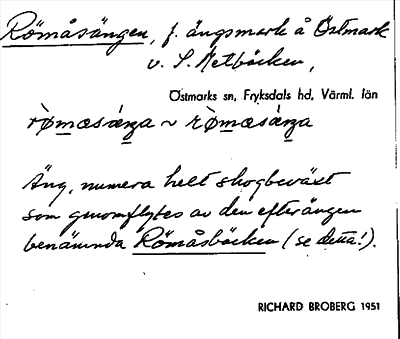 Römåsängen, f. ängsmark å Östmark
v. S. Metbäcken,
Östmarks sn, Fryksdals hd, Värml. län
Äng, numera helt skogbeväxt
som genomflytes av den efter ängen
benämnda Römåsbäcken (se detta!).
RICHARD BROBERG 1951